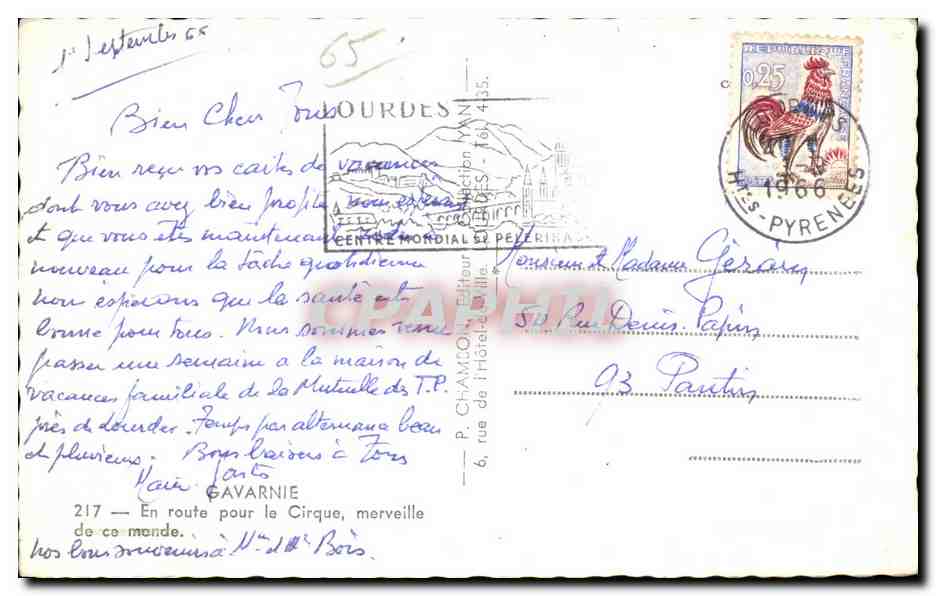 1er Septembre 66
65
Bien Chers Tous
Bien reçu vos cartes de vacances
dont vous avez bien profité, nous espérons
et que vous êtes maintenant
nouveau pour la tâche quotidienne
nous espérons que la santé est
bonne pour tous. Nous sommes venus
passer une semaine a la maison de
vacances familiale de la Mutuelle des T.P.
près de Lourdes. Temps par alternance beau
et pluvieux. Bons baisers à Tous
GAVARNIE
217 — En route pour le Cirque, merveille
de ce monde.
nos bons souvenirs à Mme et Mr Bois.
— P. CHAMBON, Editeur — Collection YAN —
6, rue de l'Hôtel-de-Ville. LOURDES - Tél. 4.35.
LOURDES
CENTRE MONDIAL DE PÈLERINAGE
REPUBLIQUE FRANCAISE
0,25
LOURDES
1966
HTES-PYRENEES
Monsieur et Madame
50 Rue Denis Papin
93 Pantin
CPARAMA